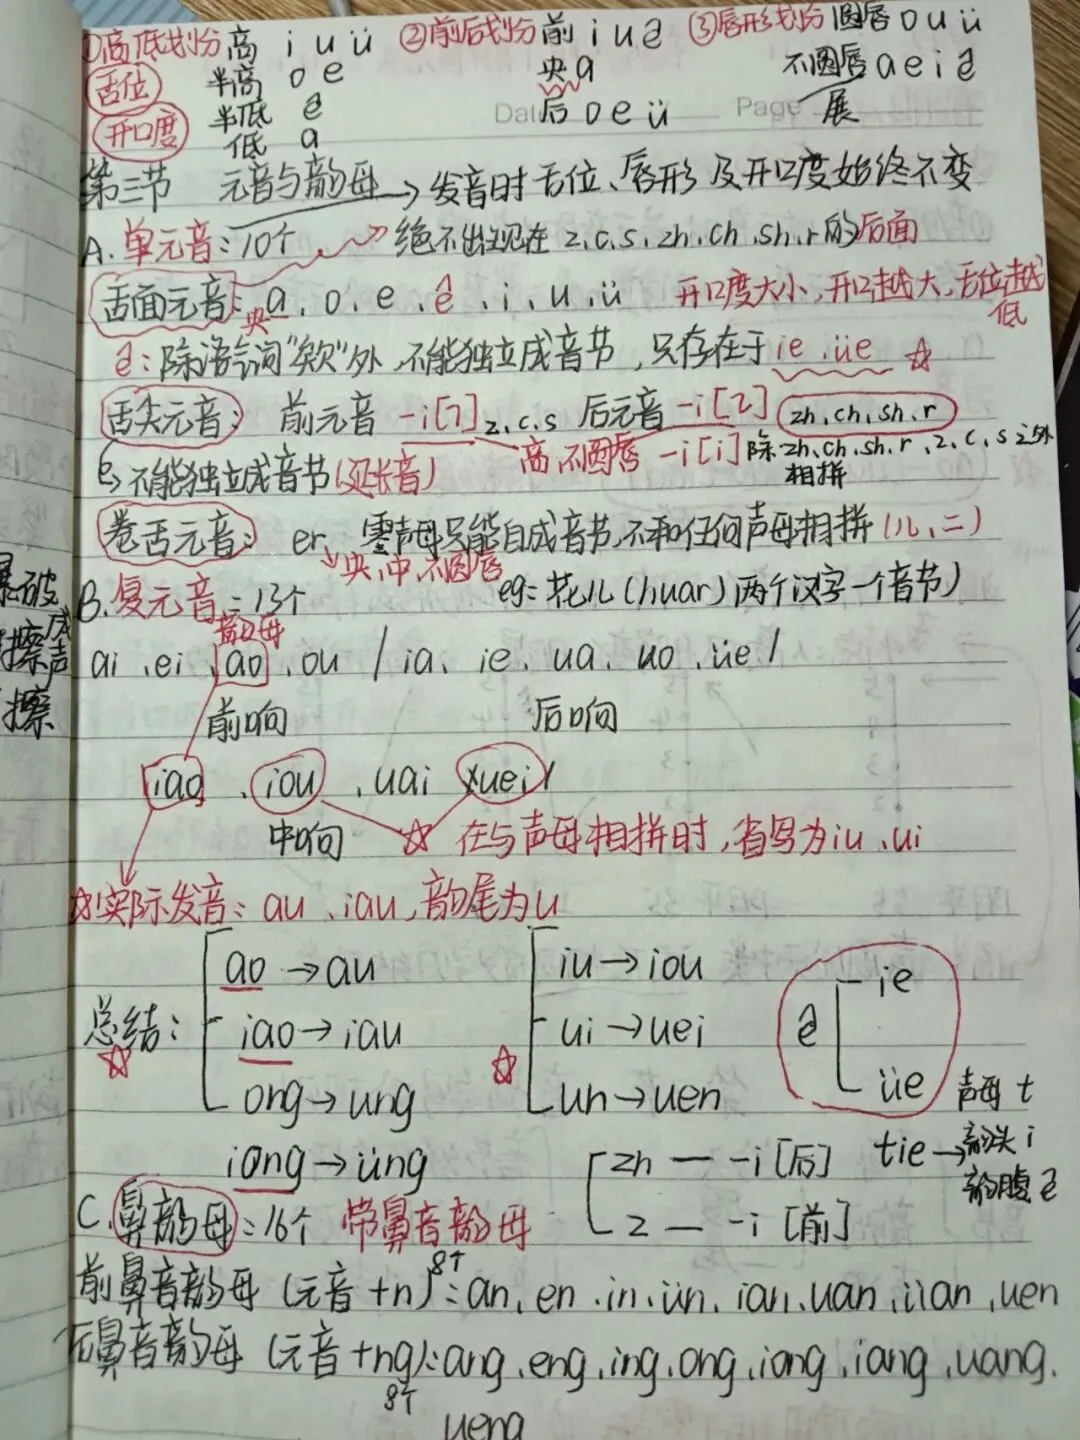 ①高低划份 高 i u ü ②前后划份 前 i u ê ③唇形划份 圆唇 o u ü
舌位 半高 o e 央 a 不圆唇 a e i ê
开口度 半低 ê 后 o e ü Page 展
低 a
第三节 元音与韵母→发音时舌位、唇形及开口度始终不变
A. 单元音:10个 绝不出现在 z、c、s、zh、ch、sh、r 的后面
舌面元音: a、o、e、ê、i、u、ü 开口度大小,开口越大,舌位越低
央
ê:除语气词"欸"外,不能独立成音节,只存在于 ie、üe ☆
舌尖元音: 前元音 -i[ɿ] z、c、s 后元音 -i[ʅ] zh、ch、sh、r
不能独立成音节(延长音) 高、不圆唇 -i[i] 除zh、ch、sh、r、z、c、s之外相拼
卷舌元音: er 零声母只能自成音节,不和任何声母相拼(儿、二)
央、中、不圆唇
B. 复元音:13个 eg:花儿(huar)两个汉字一个音节)
韵母
ai、ei、ao、ou / ia、ie、ua、uo、üe /
前响 后响
iao、iou、uai、uei
中响 ☆ 在与声母相拼时,省写为iu、ui
☆实际发音:au、iau,韵尾为u
ao→au iu→iou ie
总结: iao→iau ui→uei ê
☆ ong→ung ☆ un→uen üe 声母 t
iong→üng zh — -i[后] tie→韵头 i
z — -i[前] 韵腹 ê
C. 鼻韵母:16个 带鼻音韵母
前鼻音韵母(元音+n)8个:an、en、in、ün、ian、uan、üan、uen
后鼻音韵母(元音+ng):ang、eng、ing、ong、iong、iang、uang、
8个
ueng